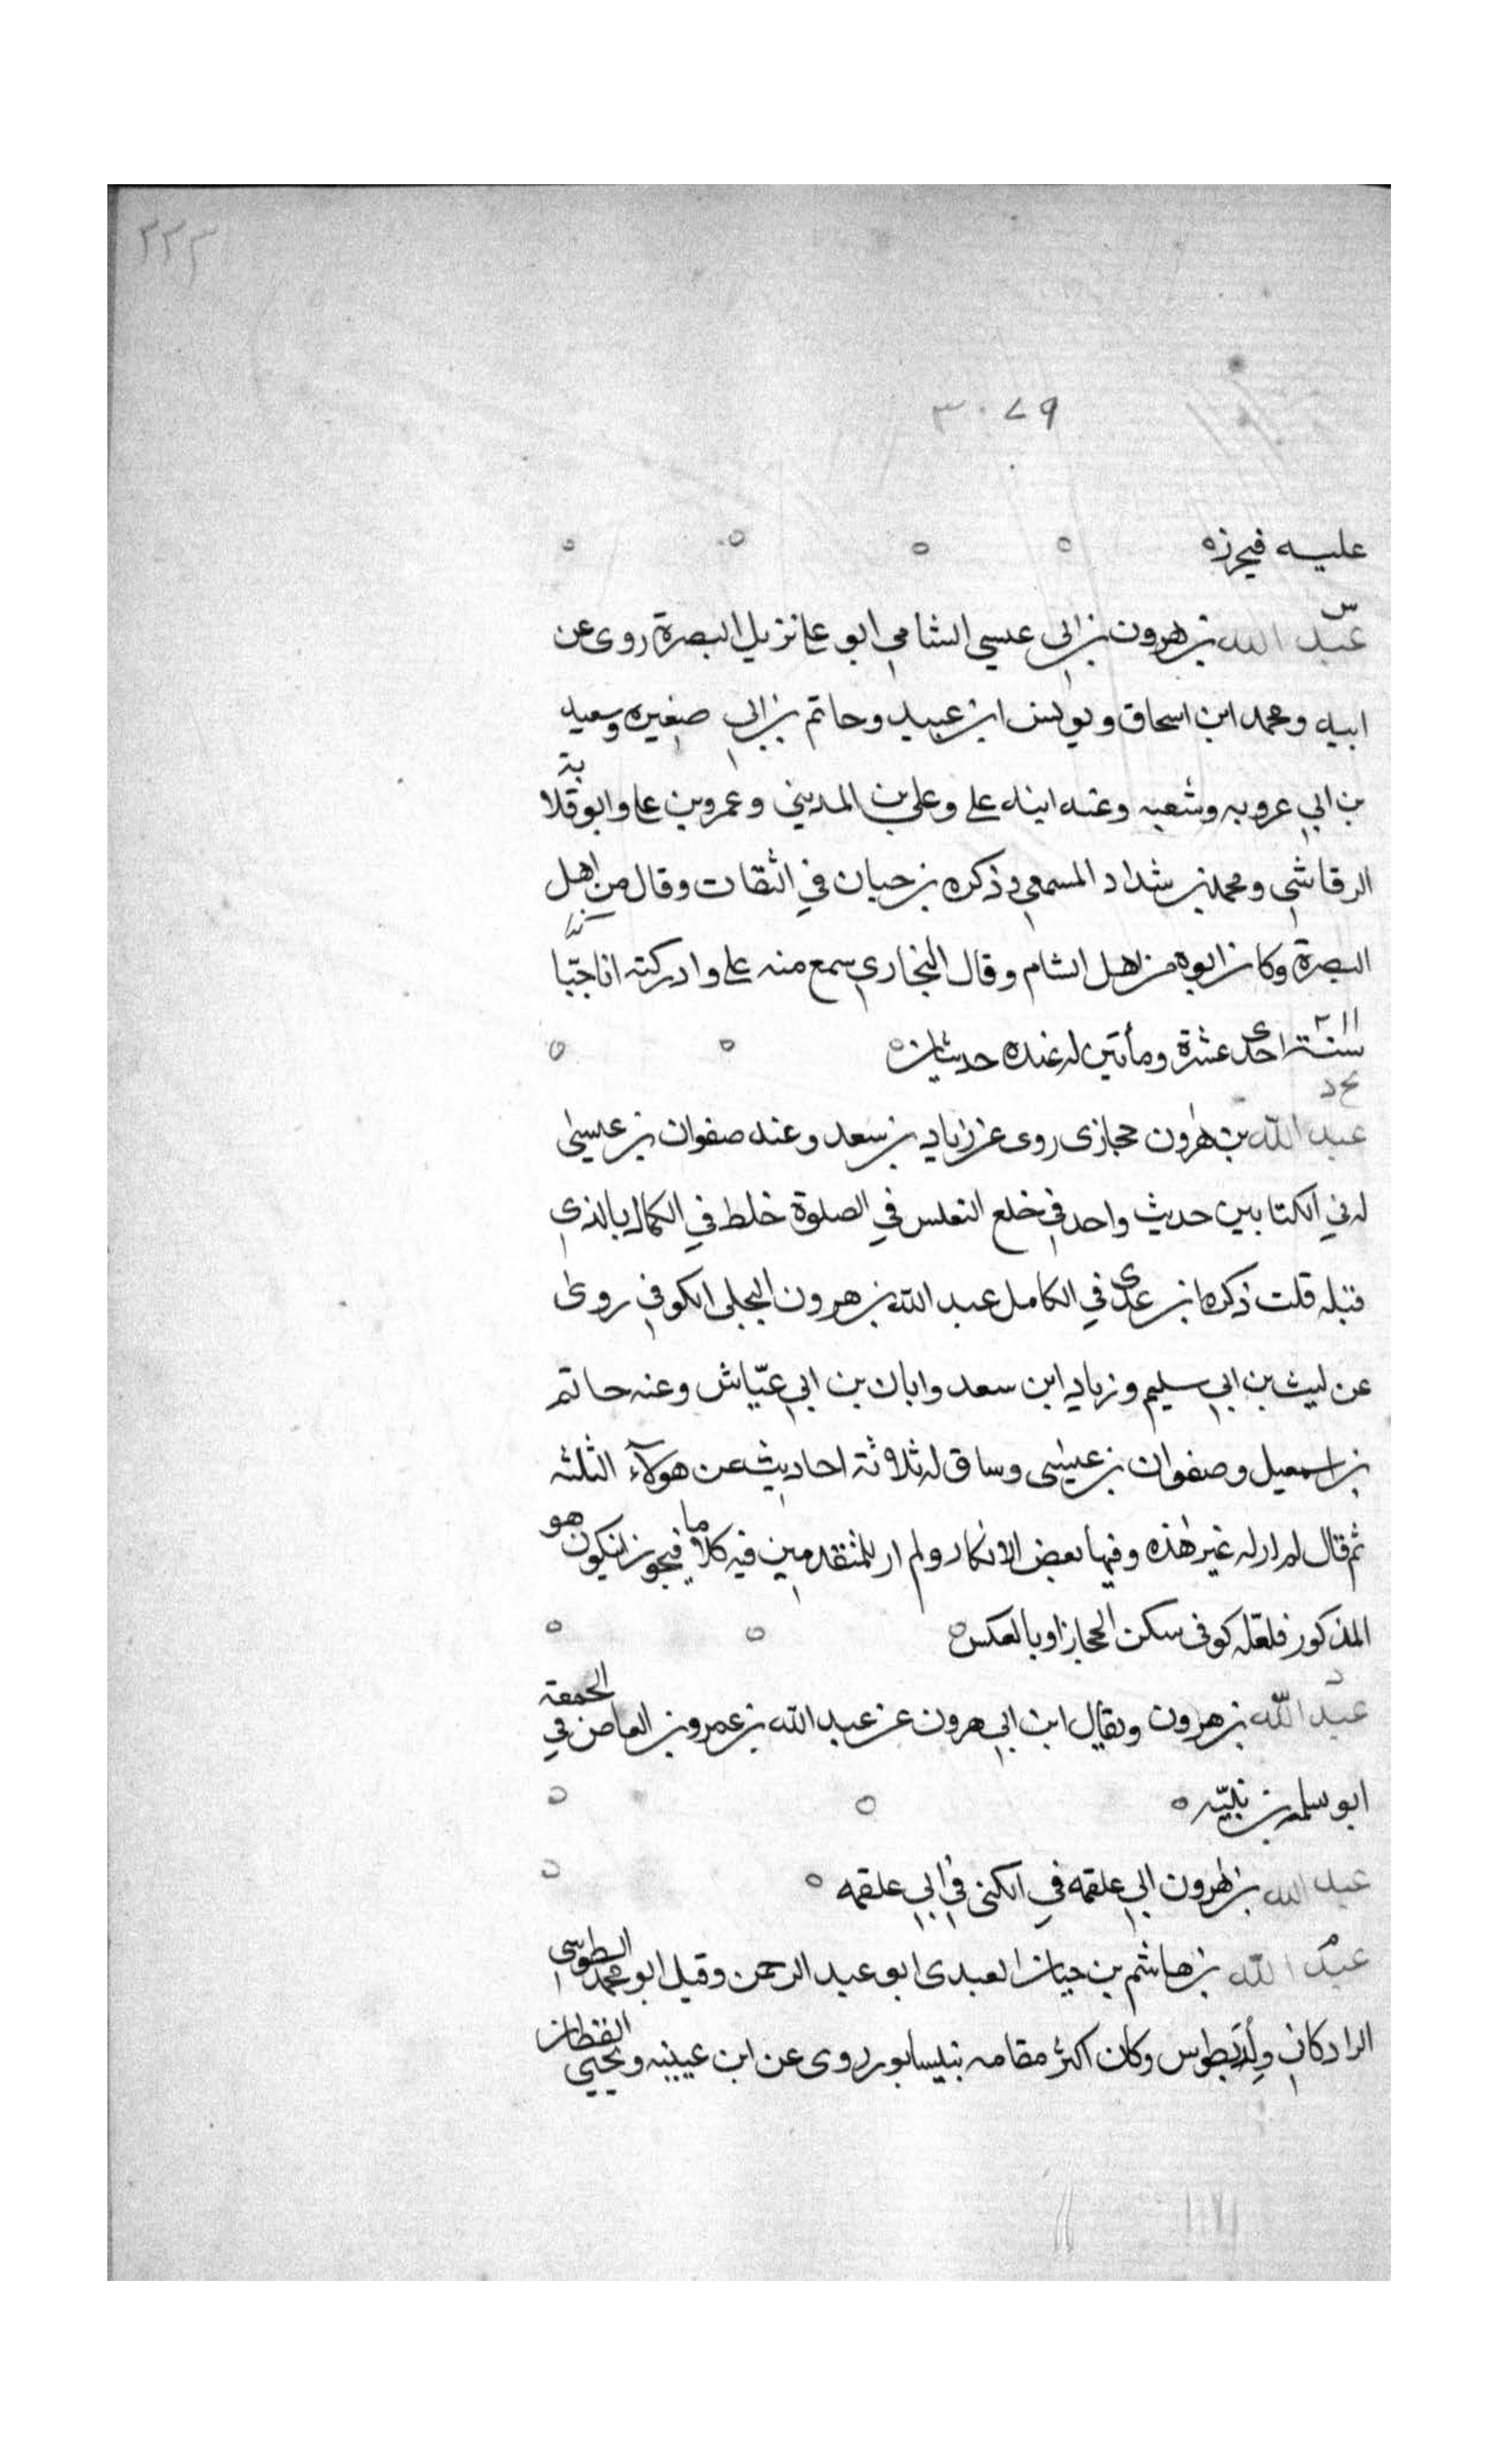 ٢٢٣
٣٠٧٩
عليه فيحرزه
س
عبد الله بن هرون بن ابي عيسى الشامي ابو علي نزيل البصرة روى عن
ابيه ومحمد ابن اسحاق ويونس ابن عبيد وحاتم بن ابي صغيره وسعيد
بن ابي عروبه وشعبه وعنه ابنه علي وعلي بن المديني وعمرو بن علي وابو قلابة
الرقاشي ومحمد بن شداد المسمعي وذكره بن حبان في الثقات وقال من اهل
البصرة وكان ابوه من اهل الشام وقال البخاري سمع منه علي وادركته انا
٢١١
سنة احدى عشرة ومأتين له عنده حديثان
عبد الله بن هرون حجازى روى عن زياد بن سعد وعنه صفوان بن عيسى
له في الكتابين حديث واحد في خلع النعلين في الصلوة خلط في الكمال بالذي
قبله قلت ذكر ابن عدى في الكامل عبد الله بن هرون البجلى الكوفي روى
عن ليث بن ابي سليم وزياد ابن سعد وابان بن ابي عيّاش وعنه حاتم
بن اسمعيل وصفوان بن عيسى وساق له ثلاثة احاديث عن هوآلاء الثلثه
ثم قال لم ار له غير هذه وفيها بعض الانكار ولم ار للمتقدمين فيه كلاما فيجوز ان يكون هو
المذكور فلعله كوفى سكن الحجاز او بالعكس
د
عبد الله بن هرون ويقال ابن ابي هرون عن عبد الله بن عمرو بن العاص في الجمعة
ابو سلمه بن نبيّه
عبد الله بن هرون ابي علقمه في الكنى في ابي علقمه
م
عبد الله بن هاشم بن حيان العبدى ابو عبد الرحمن وقيل ابو محمد الطوسي
الرادكاني ولد بطوس وكان اكثر مقامه بنيسابور روى عن ابن عيينه ويحيى القطان